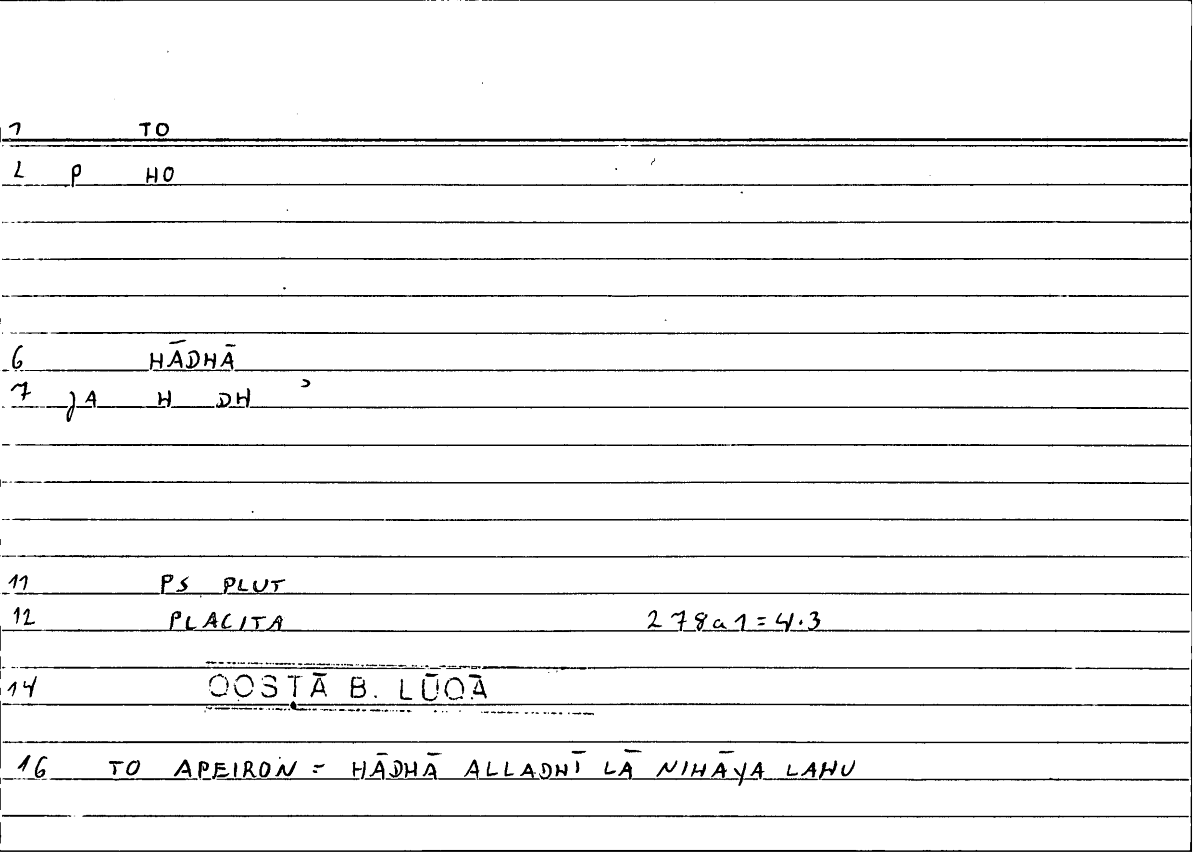 1 TO
2 P HO
6 HĀDHĀ
7 JA H DH ʾ
11 PS PLUT
12 PLACITA 278a1=4.3
14 QOSṬĀ B. LŪQĀ
16 TO APEIRON = HĀDHĀ ALLADHĪ LĀ NIHĀYA LAHU